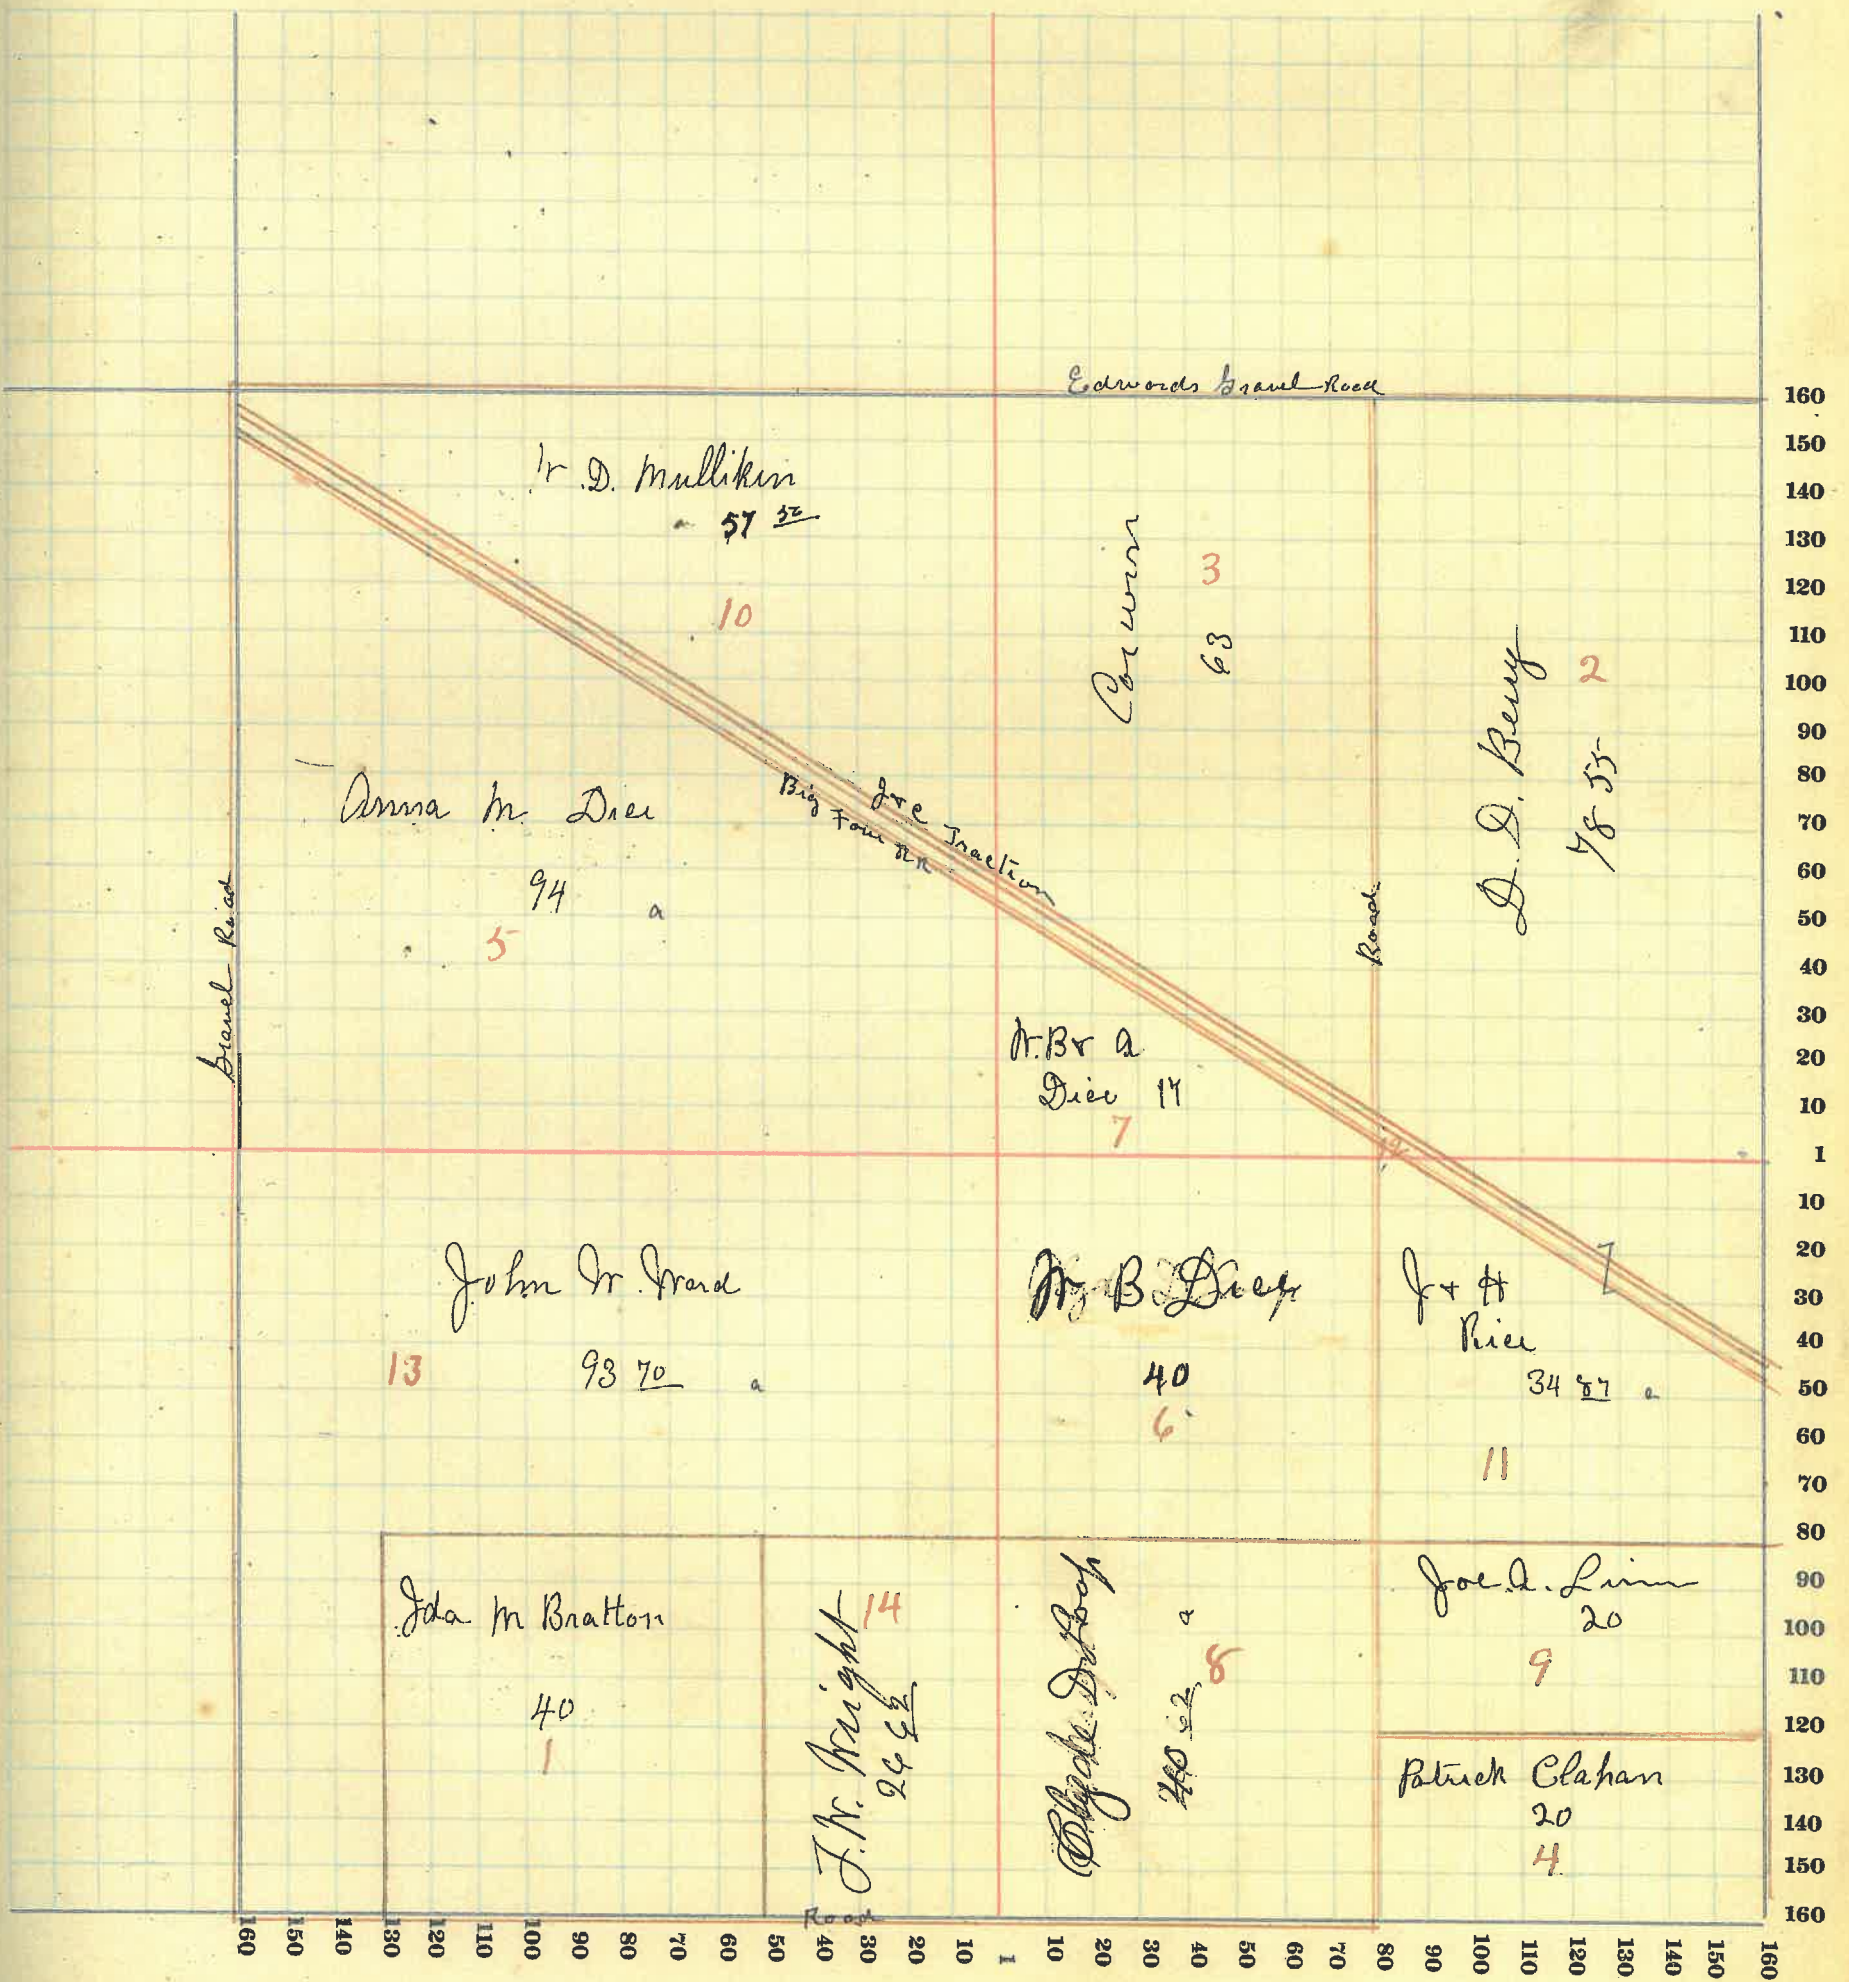 Edwards Gravel Road
W. D. Mullikin
57 50
10
Corwin
3
63
D. D. Berry
2
78 55
Anna M. Dice
94 a
5
I & C Traction
Big Four RR
Road
Gravel Road
W. B & A
Dice 17
7
12
John W. Ward
13
93 70 a
W. B Dice
40
6
J & H
Rice
34 87 a
11
Ida M Bratton
40
1
J. W. Wright
14
26 62
Clyde
a
8
40 62
Joe. A. Linn
20
9
Patrick Clahan
20
4
Road
160
150
140
130
120
110
100
90
80
70
60
50
40
30
20
10
1
10
20
30
40
50
60
70
80
90
100
110
120
130
140
150
160
160 150 140 130 120 110 100 90 80 70 60 50 40 30 20 10 1 10 20 30 40 50 60 70 80 90 100 110 120 130 140 150 160